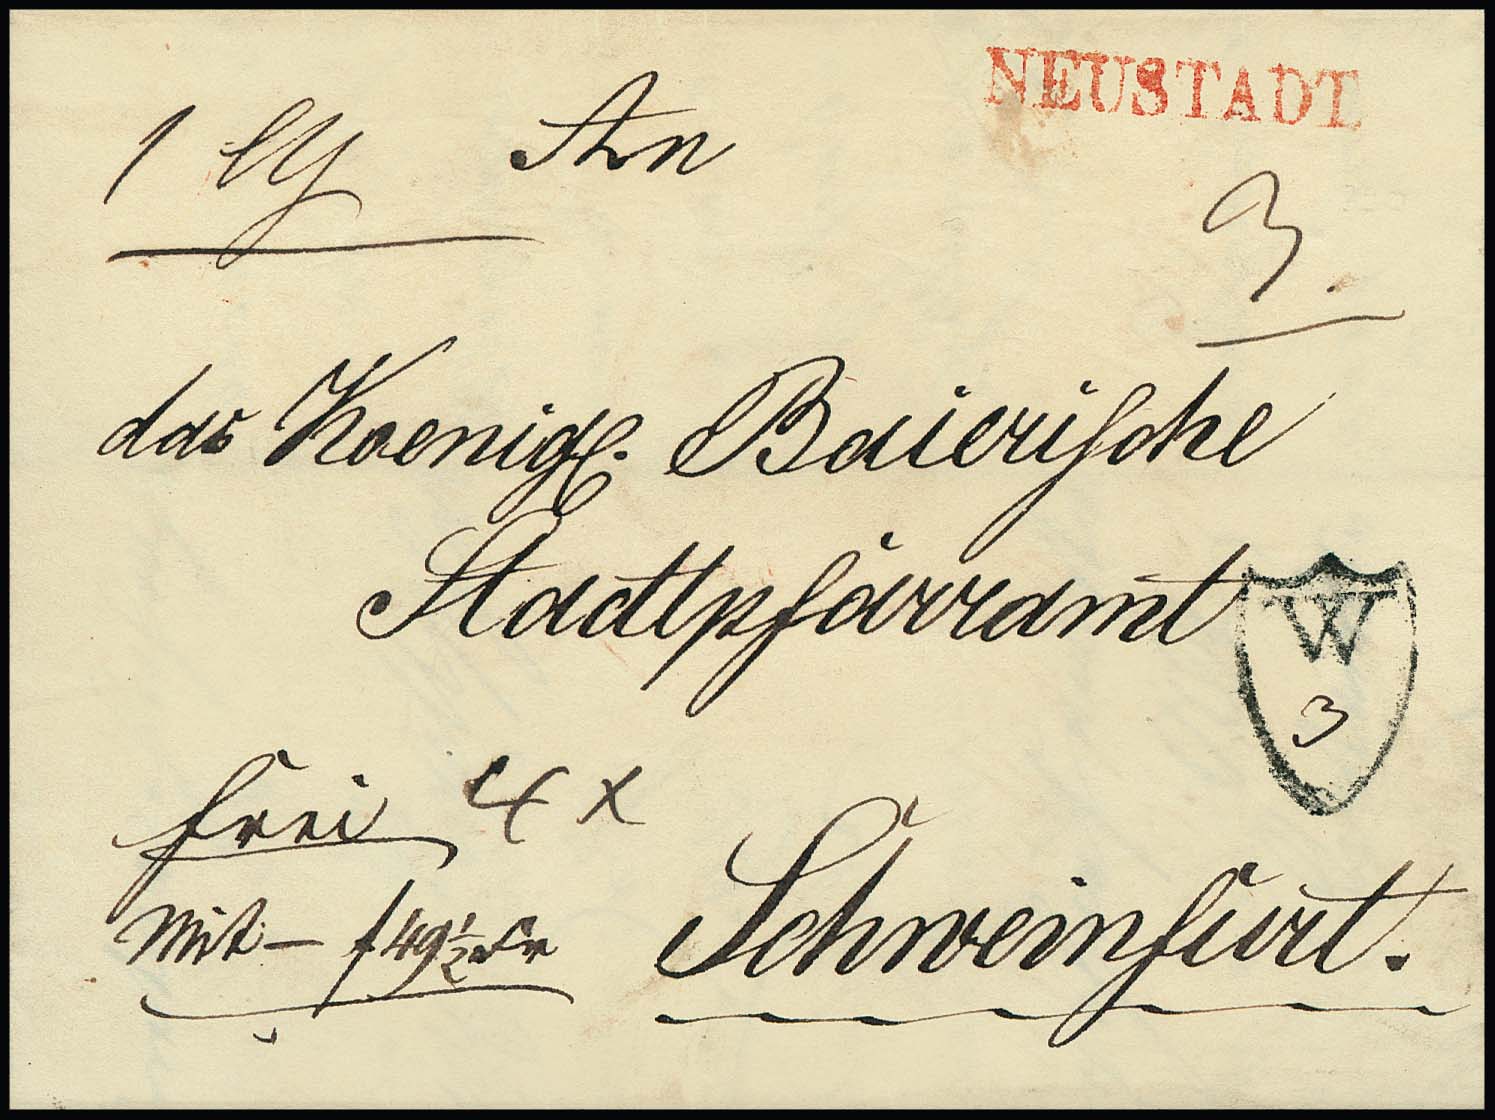 NEUSTADT
An
3.
das Koenigl. Baierische
Stadtpfarramt
W
3
frei 4 x
Mit – f 49 1/2 xr
Schweinfurt.